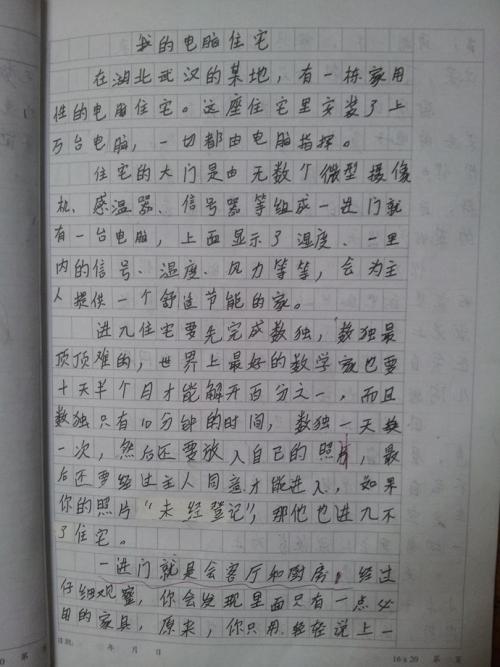 我的电脑住宅
在湖北武汉的某地，有一栋家用
性的电脑住宅。这座住宅里安装了上
万台电脑，一切都由电脑指挥。
住宅的大门是由无数个微型摄像
机、感温器、信号器等组成一进门就
有一台电脑，上面显示了湿度、一里
内的信号、温度、风力等等，会为主
人提供一个舒适节能的家。
进入住宅要先完成数独，数独最
顶顶难的，世界上最好的数学家也要
十天半个月才能解开百分之一，而且
数独只有10分钟的时间，数独一天换
一次，然后还要放入自己的照片，最
后还要经过主人同意才能进入，如果
你的照片“未经登记”，那他也进九不
了住宅。
一进门就是会客厅和厨房，经过
仔细观察，你会发现里面只有一点必
用的家具，原来，你只用轻轻说上一
日期： 年 月 日
16×20 第 页